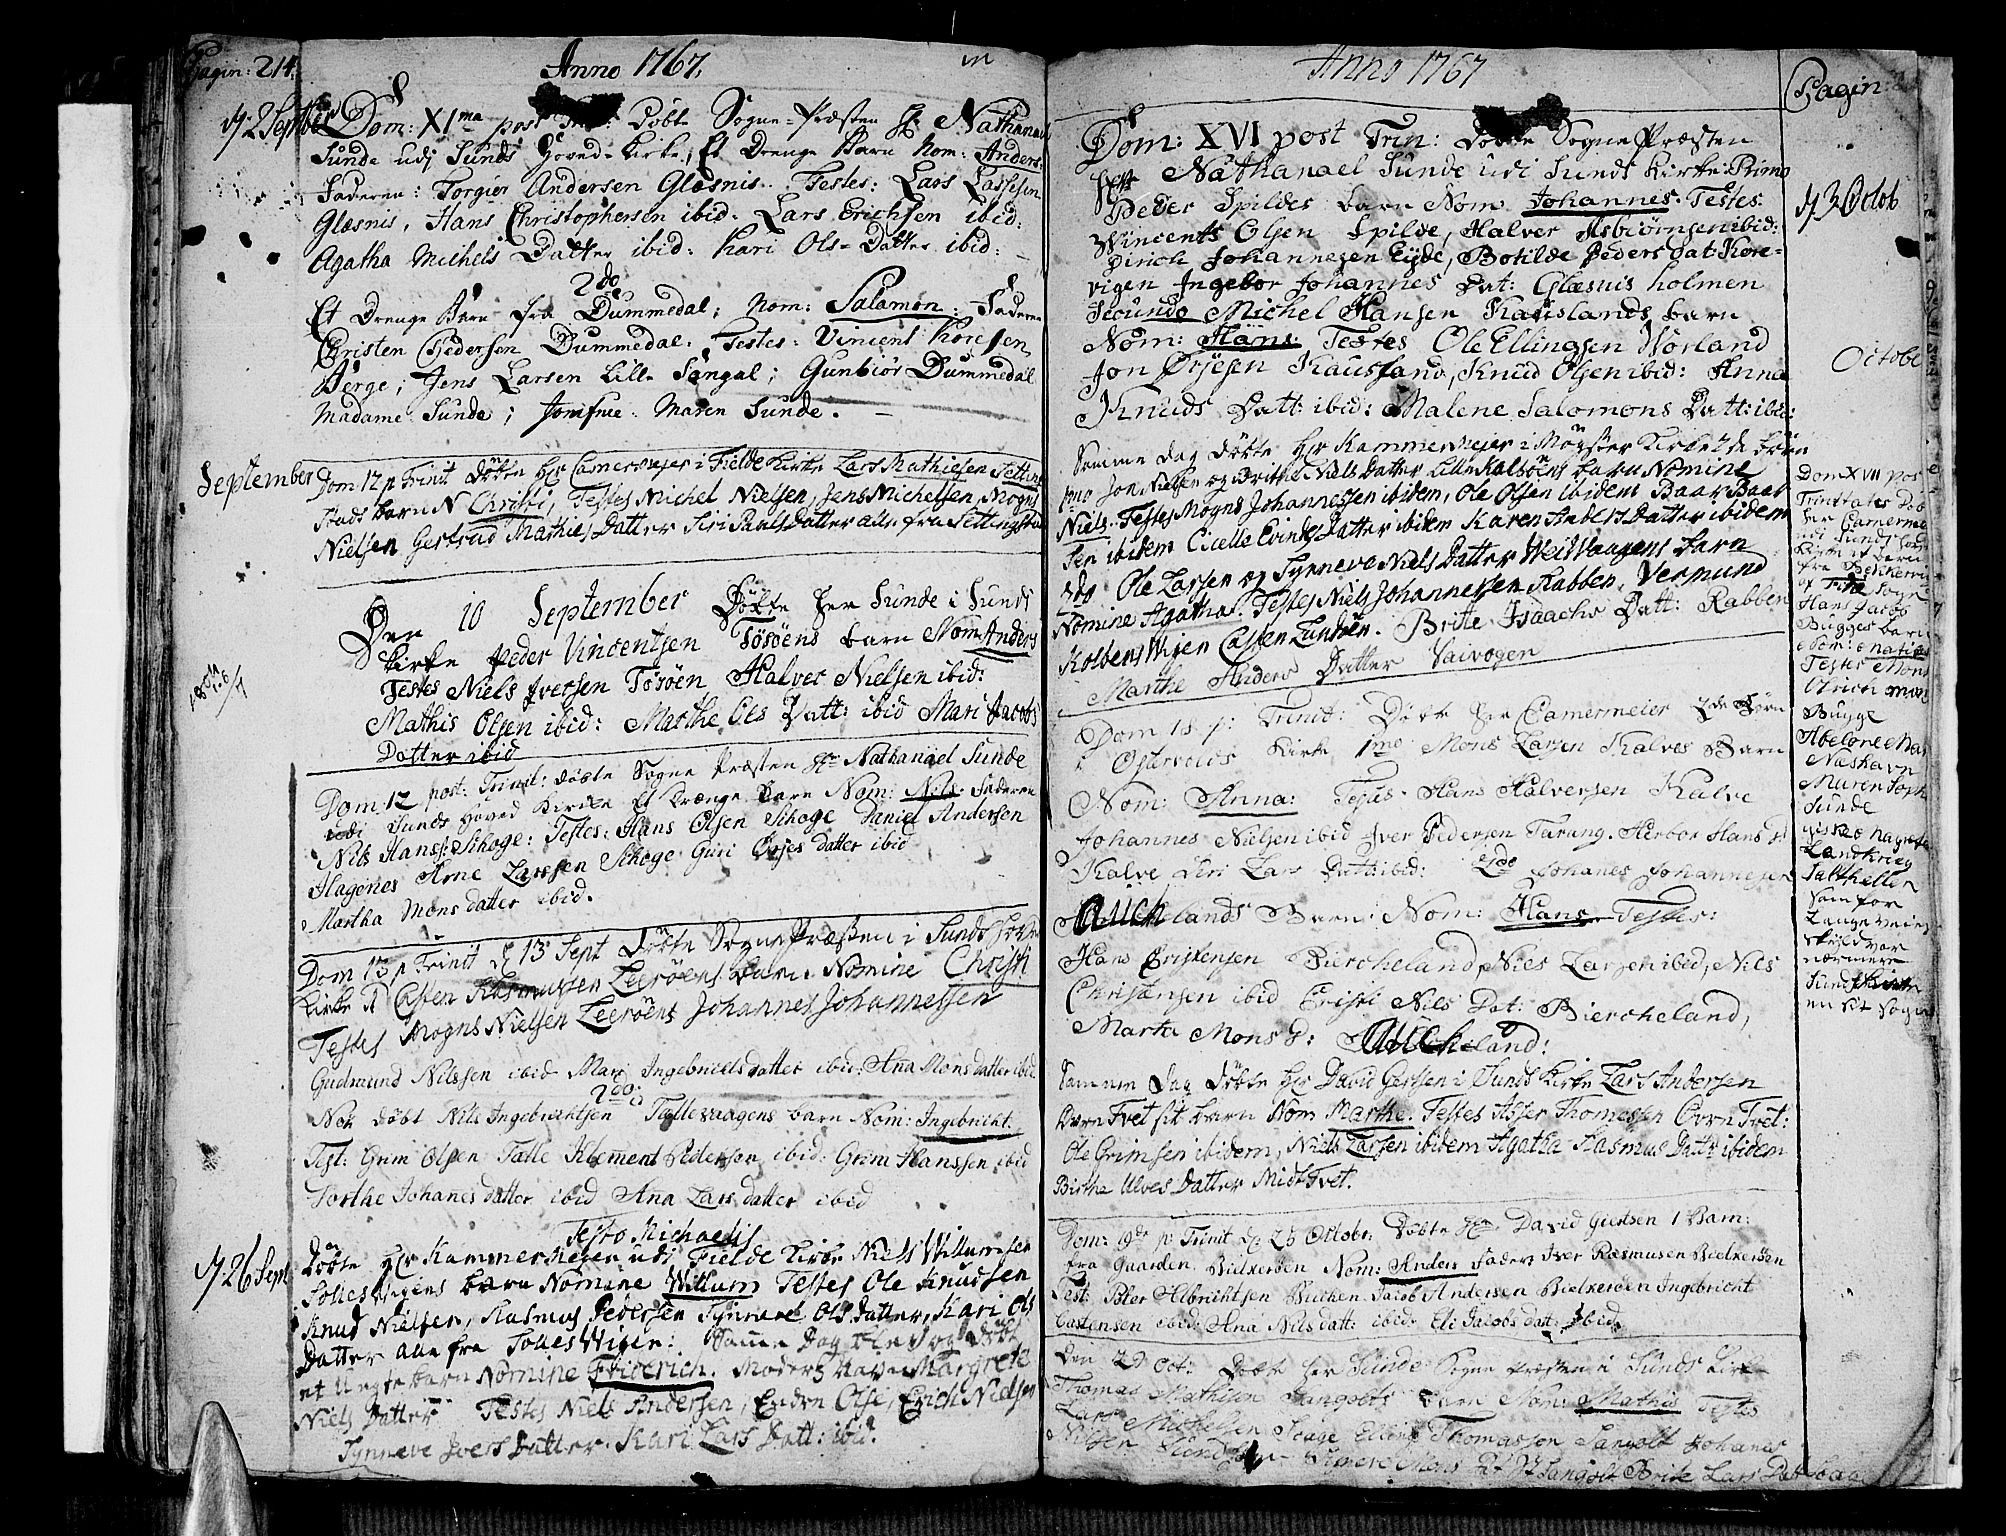 Pagin: 214.
Anno 1767.
d/ 2 September
Dom: XI ma post Døbte Sogne-Præsten Hr Nathanael
Sunde udj Sunds Hoved-Kirke, Et Drenge Barn Nom: Anders
Faderen: Torgier Andersen Glæsnis. Testes: Lars Lassesen
Glæsnis, Hans Christophersen ibid. Lars Erichsen ibid:
Agatha Michels Datter ibid: Kari Ols-Datter ibid: –
2do
Et Drenge Barn fra Dummedal; Nom: Salamon: Faderen
Christen Pedersen Dummedal. Testes: Vincent
Berge; Jens Larsen Lille Sangal; Gunbiør Dummedal
Madame Sunde; Jomfrue Maren Sunde. –
September
Dom 12 p Trinit Døbte Hr Camermejer i Fielde Kirke Lars Mathiesen Setting
stads barn N Christi, Testes Michel Nielsen, Jens Michelsen, Mogns
Nielsen Gertrud Mathies Datter Siri Pauls datter alle fra Settingstad
Den 10 September Døbte Her Sunde i Sunds
Kirke Peder Vincentsen Tøsøens barn Nom Anders
Testes Niels Iversen Tøsøen Halver Nielsen ibid:
Mathis Olsen ibid: Marthe Ols Datt: ibid Mari Jacobs
Datter ibid
Dom 12 post: Trinit: døbte Sogne Præsten Hr Nathanael Sunde
udi Sunds Hoved Kirke Et Drænge Barn Nom: Nils: Faderen
Nils Hans: Skoge: Testes: Hans Olsen Skoge Daniel Andersen
Hagenes Arne Larssen Skoge Guri Ørjes datter ibid
Martha Mons datter ibid.
Dom 13 p Trinit d 13 Sept Døbte Sogne Præsten i Sunds Hoved
Kirke Casten Rasmussen Leerøens barn Nomine Christi
Testes Mogns Nielsen Leerøens Johannes Johannessen
Gudmund Nilssen ibid Mari Ingebricktsdatter ibid: Ana Mons datter ibid
2do:
Nok døbt Nils Ingebricktsen Tællevaagens barn Nom: Ingebrickt:
Test: Grim Olsen Tælle Klement Pedersen ibid: Grim Hanssen ibid
Dorthe Johanes datter ibid Ana Lars datter ibid
Festo Michaelis
d/ 26 Sept
Døbte Hr Kammermejer udi Fielde Kirke Niels Willumsen
Solles Wigens barn Nomine Willum Testes Ole Knudsen
Knud Nielsen, Rasmus Pedersen Synneve Ols Datter, Kari Ols
Datter alle fra Solles Wigen: Samme Dag blev og døbt
et Uægte barn Nomine Friderich. Moderz Navn Margrete
Niels Datter Testes Niels Andersen, Enden Olse, Erich Nielsen
Synneve Ivers Datter. Kari Lars Datt: ibid.
Anno 1767
Pagin
d/ 3 Octob
Dom: XVI post Trin: Døbte Sogne Præsten
Hr Nathanael Sunde udi Sunds Kirke Primo
Peder Spildes barn Nom Johannes. Testes:
Wincents Olsen Spilde, Halver Asbiørnsen ibid:
Dirich Johannesen Eyde, Botilde Peders Dat Kore-
vigen Ingebor Johannes Dat: Glæsnis holmen
Secundo Michel Hansen Kauslands barn
Nom: Hans: Testes Ole Ellingsen Worland
Jon Ørjesen Kausland, Knud Olsen ibid: Anna
Knuds Datt: ibid: Malene Salomons Datt: ibid:
Samme Dag Døbte Hr Kammermejer i Møgster Kirke 2de børn
pmo Jon Nielsen og Brithe Niels Datter Lille Kalsøens barn Nomine
Niels. Testes Mogns Johannessen ibidem, Ole Olsen ibidem Baar Baar
sen ibidem Cicelle Evinds Datter ibidem Karen Anders Datter ibidem
2do Ole Lassen og Synneve Niels Datter Weit Vaagens barn
Nomine Agatha. Testes Niels Johannessen Rabben, Vermund
Kolbens Wijen Casten Lunden. Brite Isaachs Datt: Rabben
Marthe Anders Datter Vaivogen
Dom 18 p: Trinit: Døbte Her Camermeier 2de børn
i Østervolds Kirke 1mo Mons Larsen Kalves Barn
Nom: Anna: Testes Hans Halversen Kalve
Johannes Nielsen ibid Iver Pedersen Tarang. Herbor Hans D:
Kalve Siri Lars Datt: ibid: 2do Johanes Johannesen
Auchelands Barn: Nom: Hans Testes:
Hans Cristensen Biercheland, Niels Larsen ibid, Niels
Christensen ibid Cristi Niels Dat: Biercheland,
Marta Mons D: Auckeland:
Samme Dag Døbte Hr David Gertsen i Sunds Kirke Lars Andersen
Øvrn Tvet sit barn Nom Marthe. Testes Asser Thomesen Øvrn Tvet:
Ole Grimsen ibidem, Niels Larsen ibidem Agatha Rasmus Datt: ibidem
Birthe Ulves Datter Midt Tvet.
Dom: 19de p: Trinit d. 25 Octobr: Døbte Hr David Giertsen 1 Barn:
fra Gaarden Bielkerøen Nom: Anders Fader Iver Rasmusen Bielkerøen
Test: Peter Albrichtsen Buchen Jacob Andersen Bielkerøen Ingebricht
Castensen ibid: Ana Nils datt: ibid: Eli Jacobs datt: ibid
Den 29 Oct: Døbte Her Sunde Sogne Præsten i Sunds Kirke
Thomas Mathisen Sangolts Barn Nom: Mathis Testes
Lars Michelsen Skage Elling Thomassen Sangolt Johanes
Nilsen Synneve Mons Dat Sangolt Brite Lars Datt
Octobe
Dom XVII post
Trinitates Døb
Her Camerme
udi Sunds hov
Kirke et barn
fra Bekkervi
af Fitie Sogn
Hans Jacob
Bugges barn
Nom: Matias
Testes Mons
Olrich
Bugge
Abelone Ma
Næshavn
Maren Soph
Sunde
Landkrieg
Som for
Lange veies
Skyld var
nærmere
Sunds Kirke
en sit Sogn